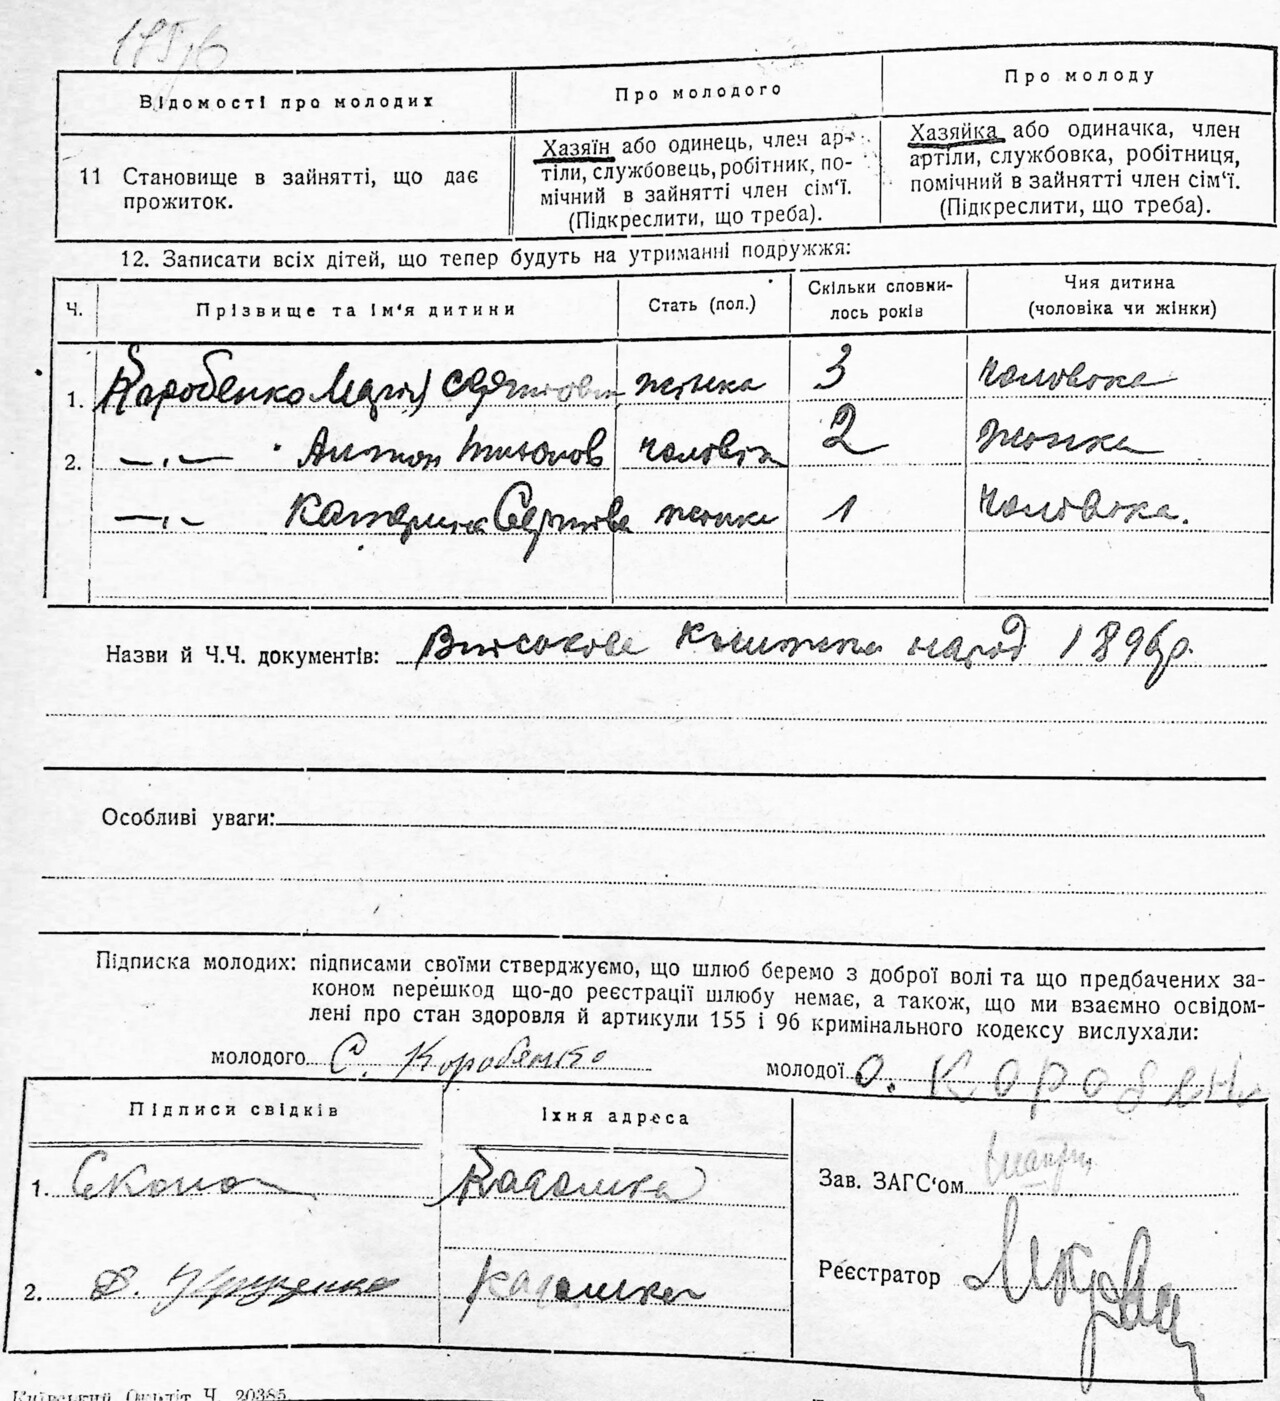 175
Відомості про молодих
Про молодого
Про молоду
11 Становище в зайнятті, що дає
прожиток.
Хазяїн або одинець, член ар-
тіли, службовець, робітник, по-
мічний в зайнятті член сім‘ї.
(Підкреслити, що треба).
Хазяйка або одиначка, член
артіли, службовка, робітниця,
помічний в зайнятті член сім‘ї.
(Підкреслити, що треба).
12. Записати всіх дітей, що тепер будуть на утриманні подружжя:
Ч.
Прізвище та ім‘я дитини
Стать (пол.)
Скільки сповни-
лось років
Чия дитина
(чоловіка чи жінки)
1. Коробенко Марія жінка 3 чоловіка
2. —„— Антон чоловік 2 жінка
—„— Катерина жінка 1 чоловіка.
Назви й Ч.Ч. документів: Військова книжка народ 1896 р.
Особливі уваги:
Підписка молодих: підписами своїми стверджуємо, що шлюб беремо з доброї волі та що предбачених за-
коном перешкод що-до реєстрації шлюбу немає, а також, що ми взаємно освідом-
лені про стан здоровля й артикули 155 і 96 кримінального кодексу вислухали:
молодого С. Коробенко
молодої О. Коробен
Підписи свідків
Їхня адреса
1.
Зав. ЗАГС‘ом
2.
Реєстратор
Київський Окрліт Ч. 20385.